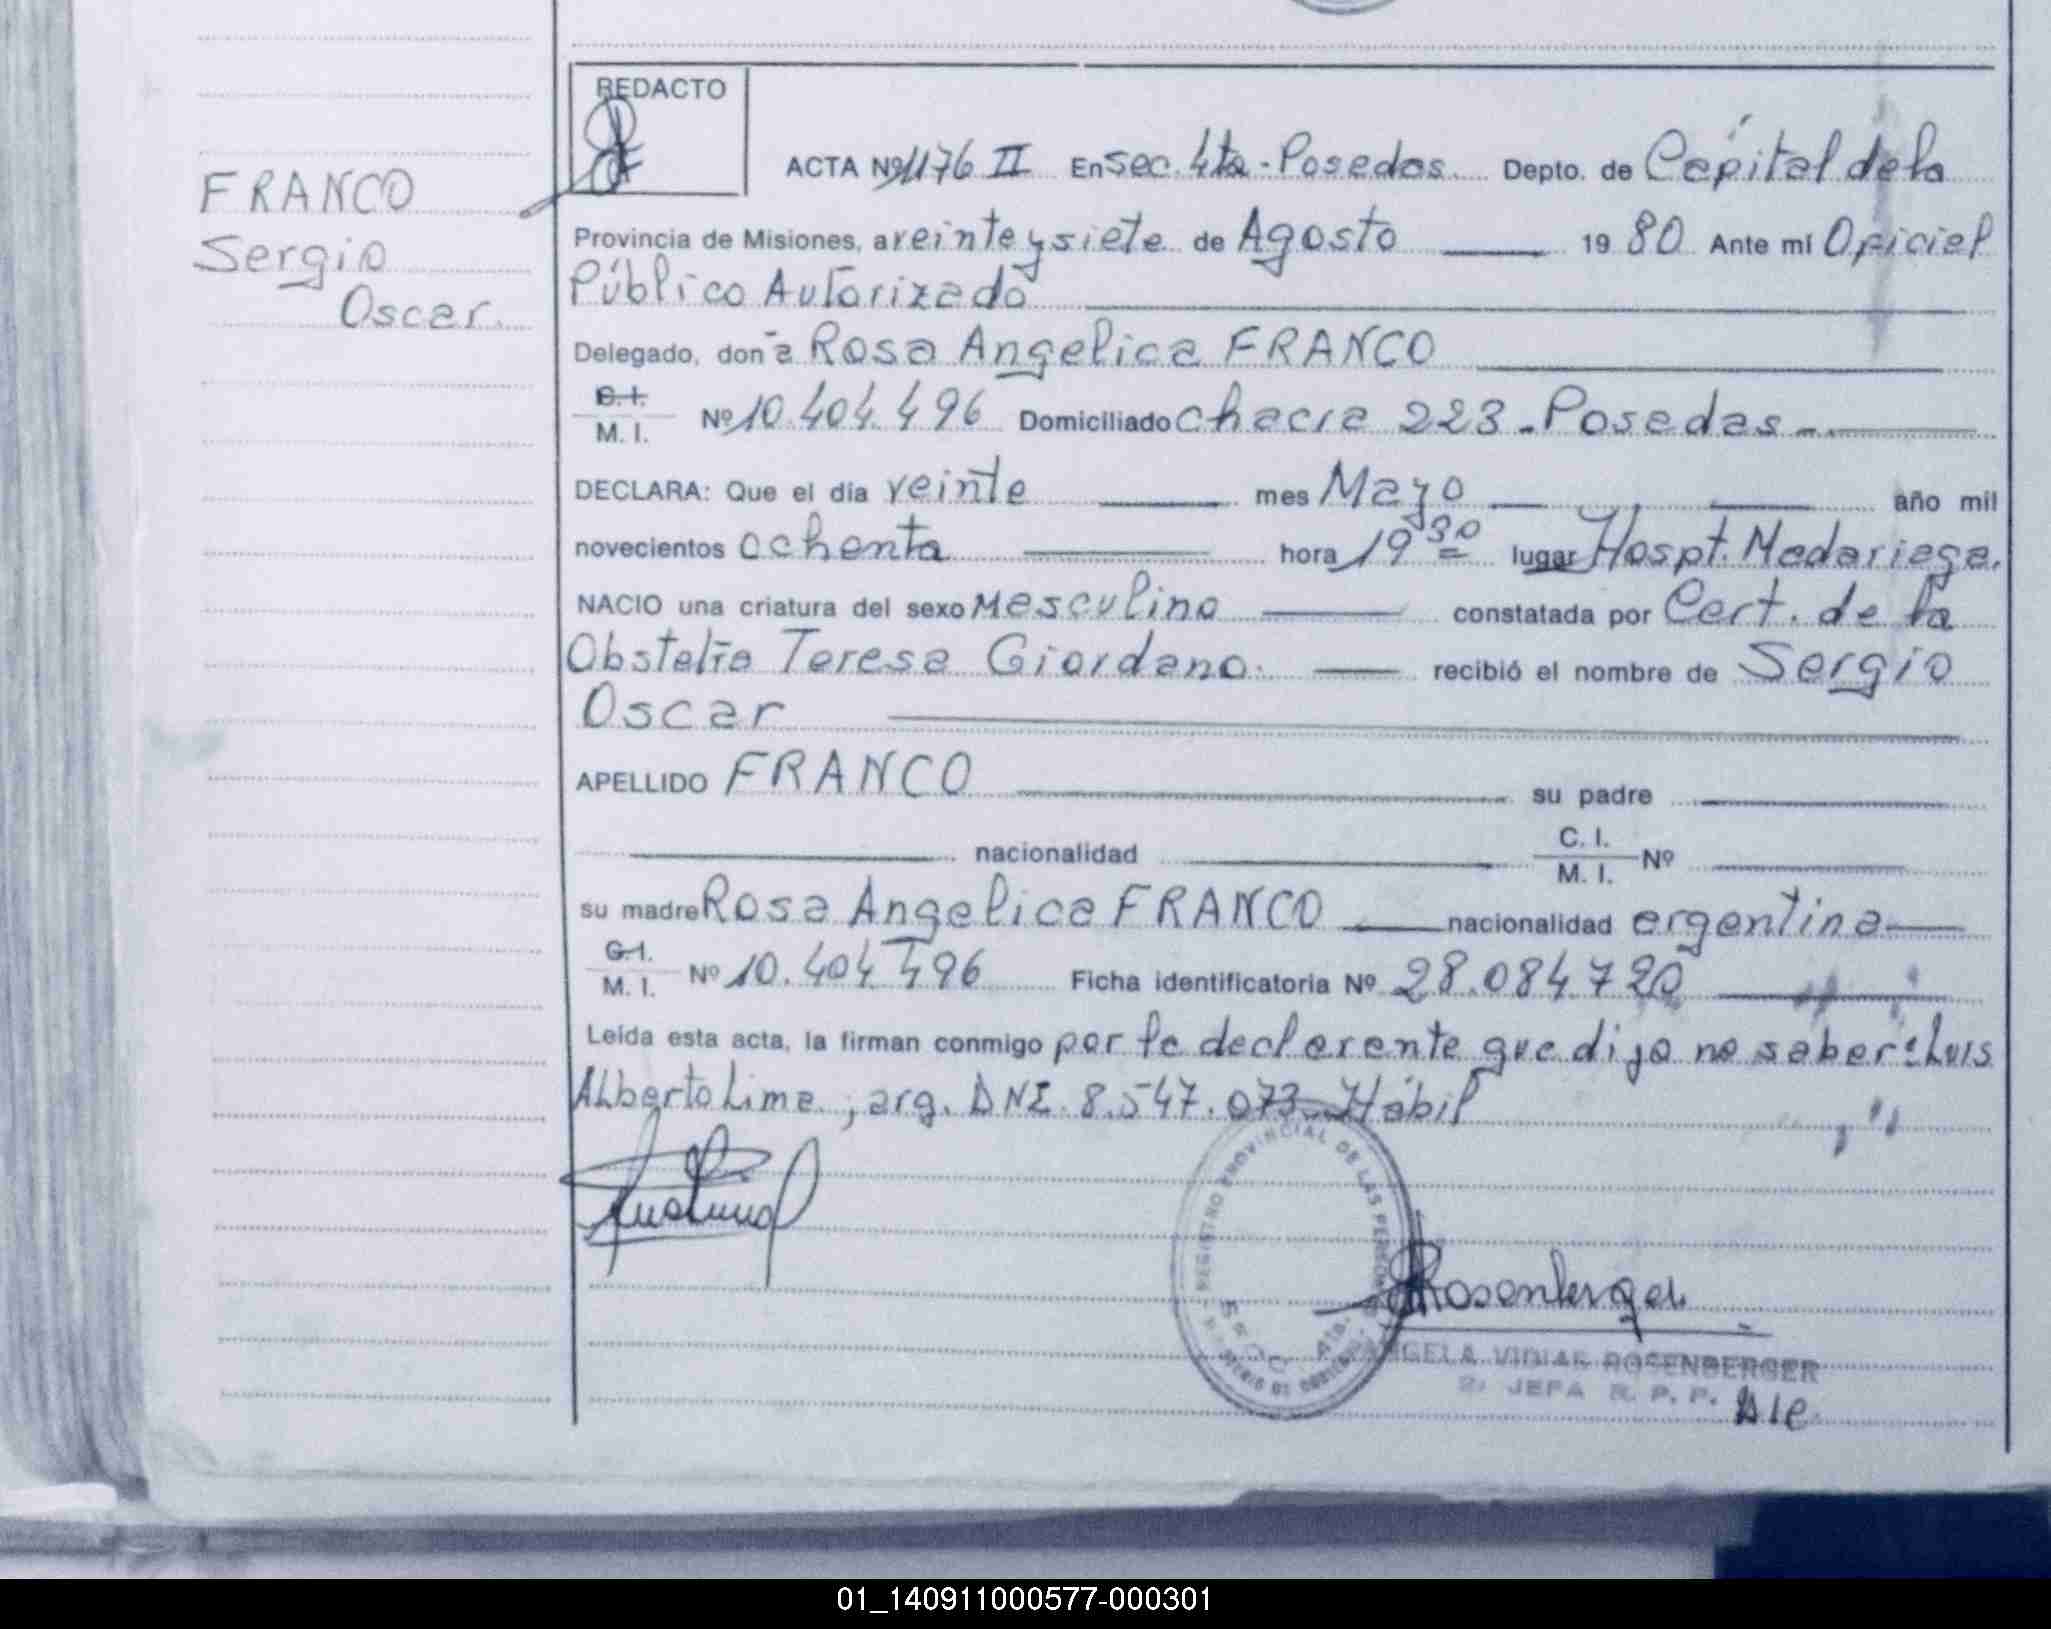 REDACTO
FRANCO
Sergio
Oscar.
ACTA Nº 1176 II En Sec. 4ta - Posadas. Depto. de Capital de la
Provincia de Misiones, a veinte y siete de Agosto 19 80 Ante mí Oficial
Público Autorizado
Delegado, don~a Rosa Angelica FRANCO
C.I.
M. I. Nº 10.404.496 Domiciliado chacra 223 - Posadas -.
DECLARA: Que el día veinte mes Mayo año mil
novecientos ochenta hora 19 30 lugar Hospt. Madariaga.
NACIO una criatura del sexo Masculino constatada por Cert. de la
Obstetra Teresa Giordano. recibió el nombre de Sergio
Oscar
APELLIDO FRANCO su padre
nacionalidad C. I.
M. I. Nº
su madre Rosa Angelica FRANCO nacionalidad argentina
C.I.
M. I. Nº 10.404.496 Ficha identificatoria Nº 28.084.720
Leída esta acta, la firman conmigo por la declarante que dijo no saber: Luis
Alberto Lima, arg. DNI. 8.547.073. Hábil
REGISTRO PROVINCIAL DE LAS PERSONAS
Secc. 4ta.
Rosenberger
ANGELA VIDIAE ROSENBERGER
2ª JEFA R. P. P. Dle.
01_140911000577-000301